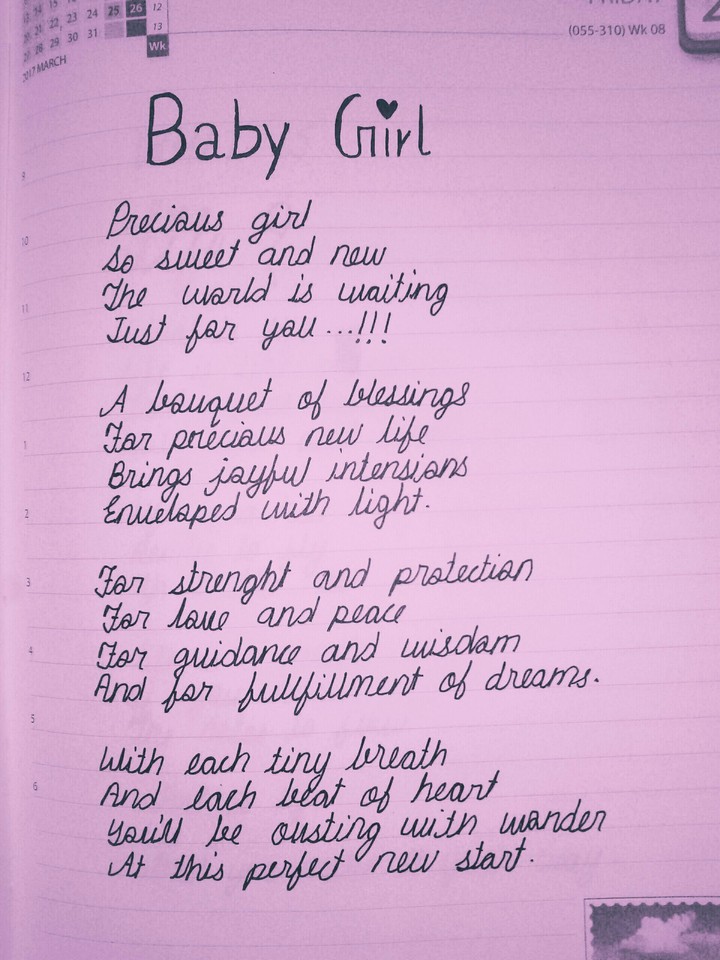 25 26 12
22 23 24 13
28 29 30 31 Wk
2017 MARCH
FRIDAY
(055-310) Wk 08
Baby Girl
9
Precious girl
10
So sweet and new
The world is waiting
11
Just for you...!!!
12
A bouquet of blessings
1
For precious new life
Brings joyful intensions
2
Enveloped with light.
3
For strenght and protection
For love and peace
4
For guidance and wisdom
And for fullfillment of dreams.
5
With each tiny breath
6
And each beat of heart
You'll be ousting with wonder
At this perfect new start.